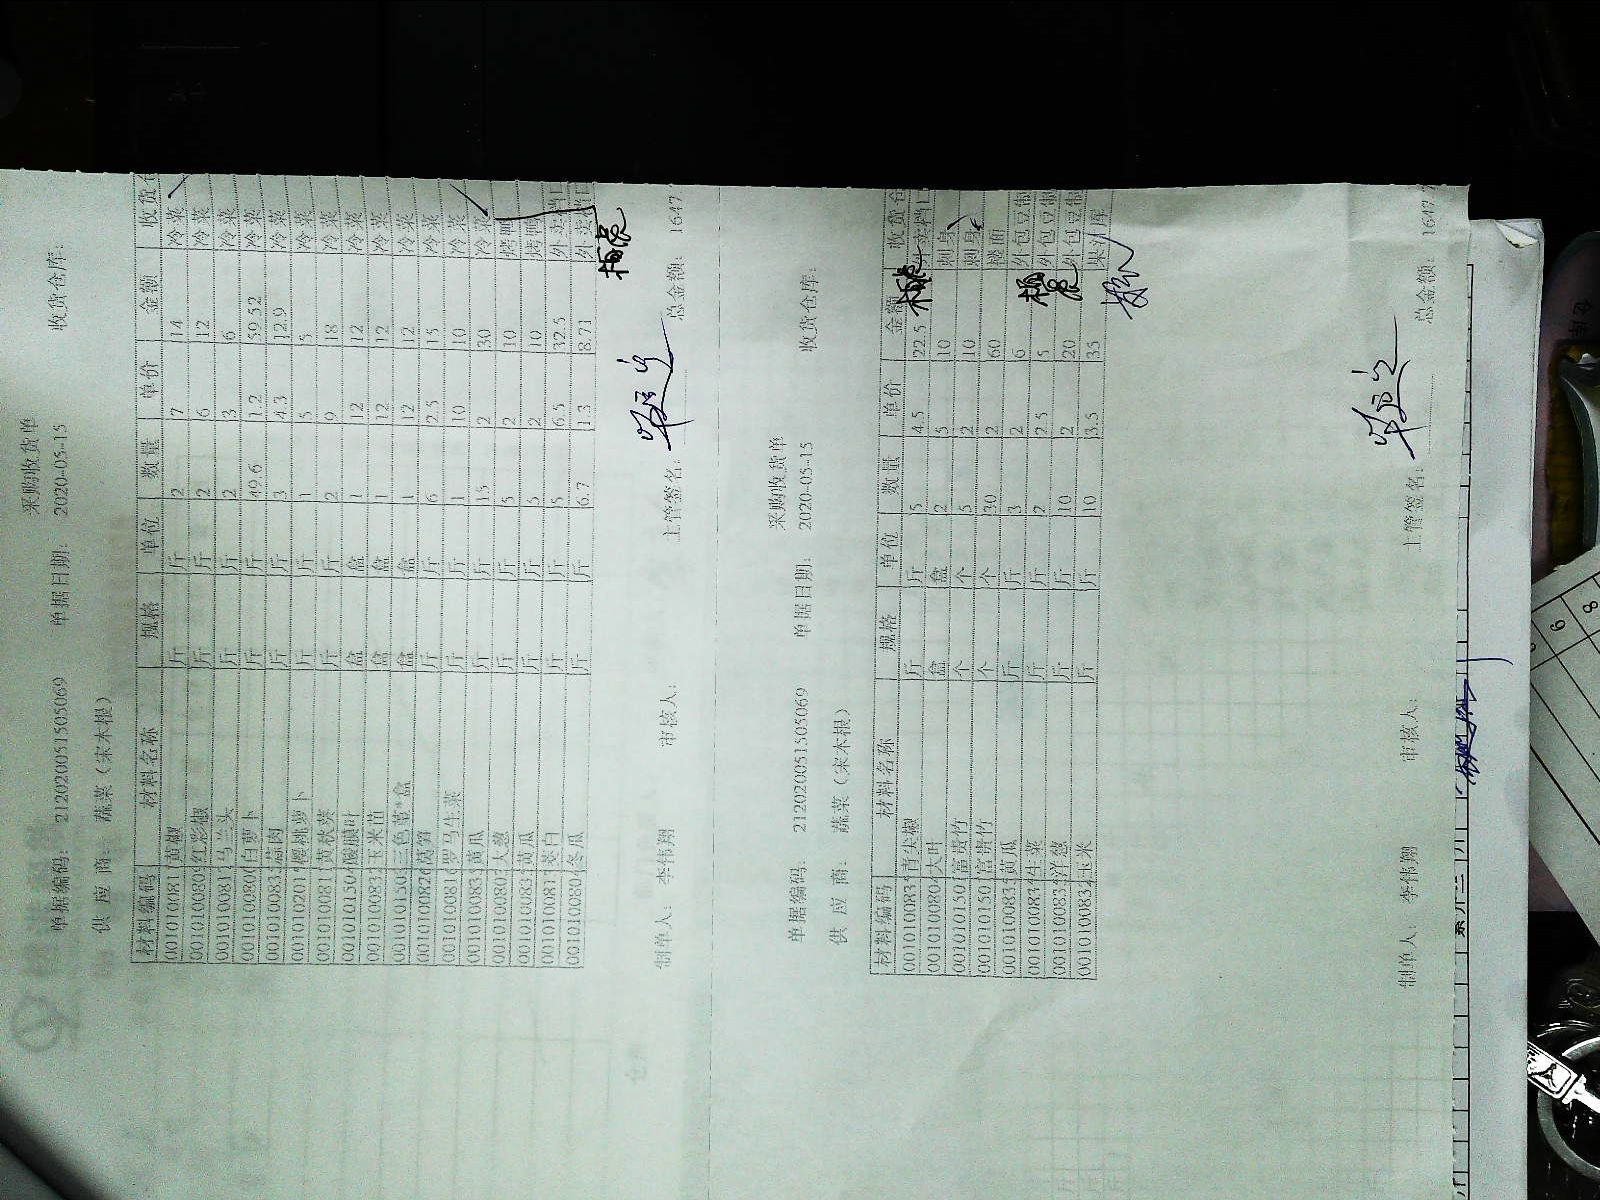 采购收货单
单据编码: 212020051505069 单据日期: 2020-05-15 收货仓库:
供 应 商: 蔬菜(宋木根)
材料编码 材料名称 规格 单位 数量 单价 金额 收货仓
001010081 黄椒 斤 斤 2 7 14 冷菜
001010080 红彩椒 斤 斤 2 6 12 冷菜
001010081 马兰头 斤 斤 2 3 6 冷菜
001010080 白萝卜 斤 斤 49.6 1.2 59.52 冷菜
001010083 蒜肉 斤 斤 3 4.3 12.9 冷菜
001010201 樱桃萝卜 斤 斤 1 5 5 冷菜
001010081 黄秋葵 斤 斤 2 9 18 冷菜
001010150 酸膜叶 盒 盒 1 12 12 冷菜
001010083 玉米苗 盒 盒 1 12 12 冷菜
001010150 三色堇*盒 盒 盒 1 12 12 冷菜
001010082 莴笋 斤 斤 6 2.5 15 冷菜
001010081 罗马生菜 斤 斤 1 10 10 冷菜
001010083 黄瓜 斤 斤 15 2 30 冷菜
001010080 大葱 斤 斤 5 2 10 烤鸭
001010083 黄瓜 斤 斤 5 2 10 烤鸭
001010081 茭白 斤 斤 5 6.5 32.5 外卖档口
001010080 冬瓜 斤 斤 6.7 1.3 8.71 外卖档口
制单人: 李伟翔 审核人: 主管签名: 总金额: 1647
采购收货单
单据编码: 212020051505069 单据日期: 2020-05-15 收货仓库:
供 应 商: 蔬菜(宋木根)
材料编码 材料名称 规格 单位 数量 单价 金额 收货仓
001010083 青尖椒 斤 斤 5 4.5 22.5 外卖档口
001010080 大叶 盒 盒 2 5 10 刺身
001010150 富贵竹 个 个 5 2 10 刺身
001010150 富贵竹 个 个 30 2 60
001010083 黄瓜 斤 斤 3 2 6 外包豆制
001010081 生菜 斤 斤 2 2.5 5 外包豆制
001010083 洋葱 斤 斤 10 2 20 外包豆制
001010083 玉米 斤 斤 10 3.5 35 果汁库
制单人: 李伟翔 审核人: 主管签名: 总金额: 1647.
6
8